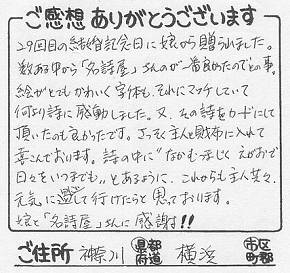 ご感想 ありがとうございます
29回目の結婚記念日に娘から贈られました。
数ある中から「名詩屋」さんのが一番良かったのでとの事。
絵がとてもかわいく字体も、それにマッチしていて
何より詩に感動しました。又、その詩をカードにして
頂いたのも良かったです。さっそく主人と財布に入れて
喜こんでおります。詩の中に"なかむつまじく えがおで
日々をいつまでも"とあるように、これからも主人共々、
元気に過して行けたらと思っております。
娘と「名詩屋」さんに感謝!!
ご住所 神奈川 都道府県 横浜 市区町郡